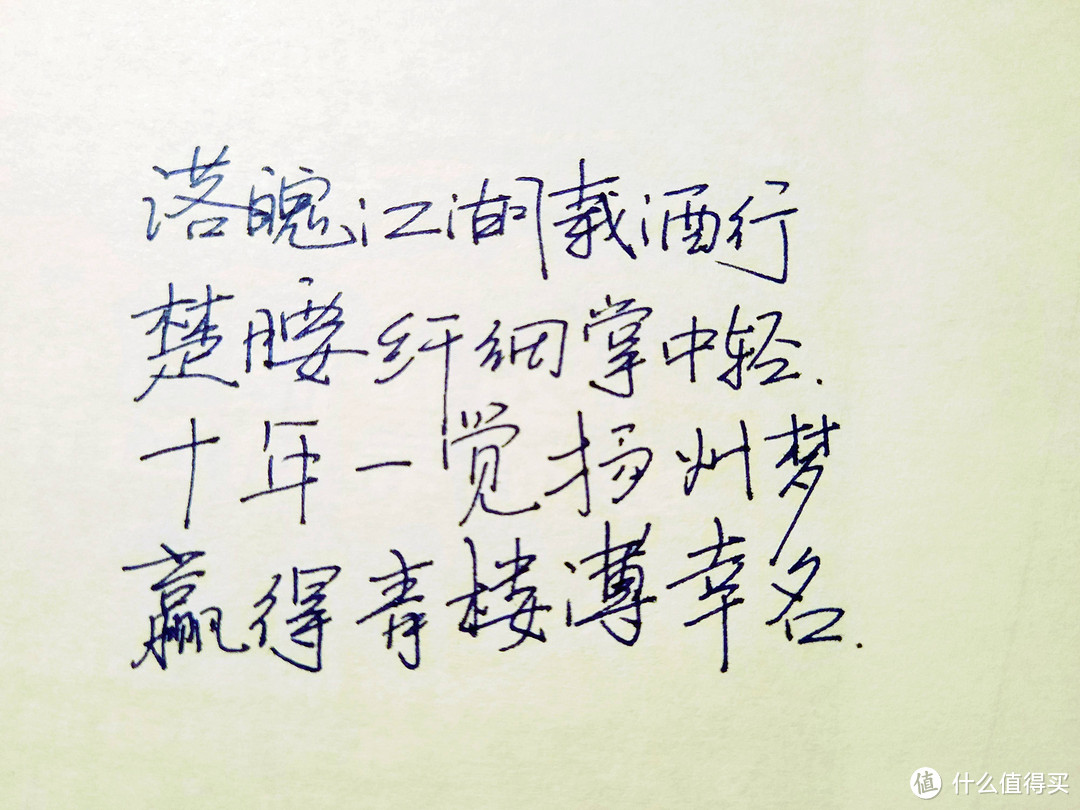 落魄江湖载酒行
楚腰纤细掌中轻.
十年一觉扬州梦
赢得青楼薄幸名.
值 什么值得买